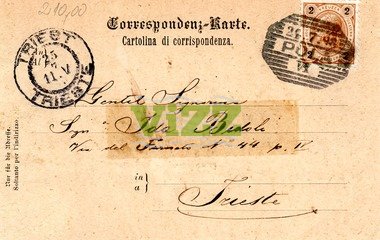 210,00
Correspondenz-Karte.
Cartolina di corrispondenza.
TRIEST
TRIESTE
11. V
2 2
POLA
Gentil Signorina
Sig.na Ida
Via del N 44 p. IV
VIZZ
in
a
Trieste
Nur für die Adresse.
Soltanto per l'indirizzo.